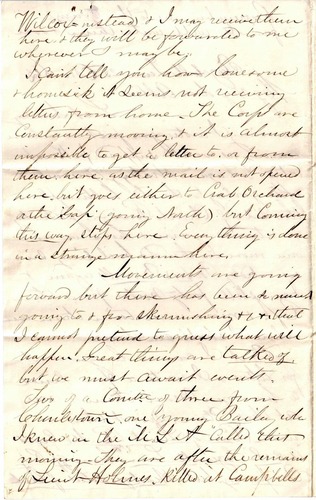 Wilcox" instead & I may receive them
here & they will be forwarded to me
wherever I may be.
I can't tell you how lonesome
& homesick it seems not receiving
letters from home. The Corps are
constantly moving & it is almost
impossible to get a letter to or from
them here, as the mail is not opened
here, but goes either to Crab Orchard
or the Gap (going North) but coming
this way stops here. Everything is done
in a strange manner here.
Movements are going
forward but there has been so much
going to & fro skirmishing &c &c that
I cannot pretend to guess what will
happen. Great things are talked of
but we must await events.
Two of a Comtee of three from
Charlestown, one young Baila who
I knew in the M L A called this
morning. They are after the remains
of Lieut Holmes, killed at Campbells